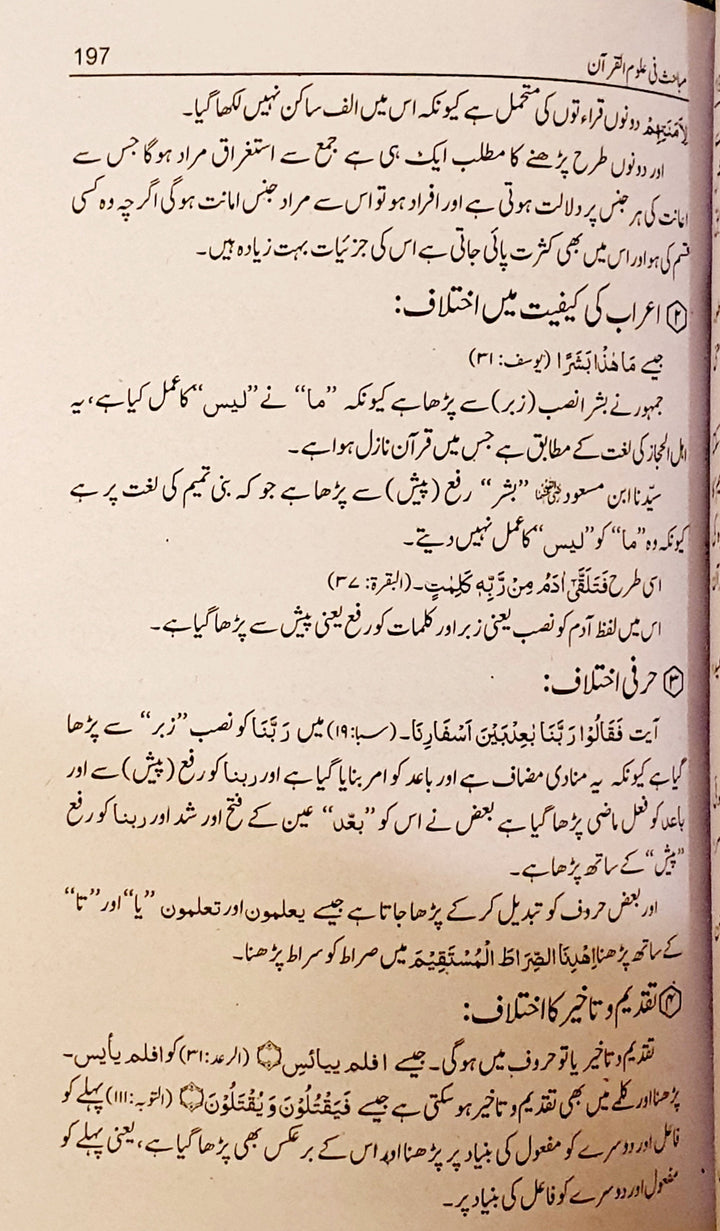 197
مباحث فی علوم القرآن
لِاَمٰنٰتِهِمْ دونوں قراءتوں کی متحمل ہے کیونکہ اس میں الف ساکن نہیں لکھا گیا۔
اور دونوں طرح پڑھنے کا مطلب ایک ہی ہے جمع سے استغراق مراد ہوگا جس سے
امانت کی ہر جنس پر دلالت ہوتی ہے اور افراد ہو تو اس سے مراد جنس امانت ہوگی اگرچہ وہ کسی
قسم کی ہو اور اس میں بھی کثرت پائی جاتی ہے اس کی جزئیات بہت زیادہ ہیں۔
۲ اعراب کی کیفیت میں اختلاف:
جیسے مَا هٰذَا بَشَرًا (یوسف: ۳۱)
جمہور نے بشرا نصب (زبر) سے پڑھا ہے کیونکہ ”ما“ نے ”لیس“ کا عمل کیا ہے، یہ
اہل الحجاز کی لغت کے مطابق ہے جس میں قرآن نازل ہوا ہے۔
سیّدنا ابن مسعود رضی اللہ عنہ ”بشر“ رفع (پیش) سے پڑھا ہے جو کہ بنی تمیم کی لغت پر ہے
کیونکہ وہ ”ما“ کو ”لیس“ کا عمل نہیں دیتے۔
اسی طرح فَتَلَقّٰۤى اٰدَمُ مِنْ رَّبِّهٖ كَلِمٰتٍ۔ (البقرۃ: ۳۷)
اس میں لفظ آدم کو نصب یعنی زبر اور کلمات کو رفع یعنی پیش سے پڑھا گیا ہے۔
۳ حرفی اختلاف:
آیت فَقَالُوْا رَبَّنَا بٰعِدْ بَیْنَ اَسْفَارِنَا۔ (سبا: ۱۹) میں رَبَّنَا کو نصب ”زبر“ سے پڑھا
گیا ہے کیونکہ یہ منادی مضاف ہے اور باعد کو امر بنایا گیا ہے اور ربنا کو رفع (پیش) سے اور
باعد کو فعل ماضی پڑھا گیا ہے بعض نے اس کو ”بعّد“ عین کے فتح اور شد اور ربنا کو رفع
”پیش“ کے ساتھ پڑھا ہے۔
اور بعض حروف کو تبدیل کر کے پڑھا جاتا ہے جیسے یعلمون اور تعلمون ”یا“ اور ”تا“
کے ساتھ پڑھنا اِهْدِنَا الصِّرَاطَ الْمُسْتَقِیْمَ میں صراط کو سراط پڑھنا۔
۴ تقدیم و تاخیر کا اختلاف:
تقدیم و تاخیر یا تو حروف میں ہوگی۔ جیسے افلم ییائس (الرعد: ۳۱) کو افلم یأیس۔
پڑھنا اور کلمے میں بھی تقدیم و تاخیر ہو سکتی ہے جیسے فَیَقْتُلُوْنَ وَ یُقْتَلُوْنَ (التوبہ: ۱۱۱) پہلے کو
فاعل اور دوسرے کو مفعول کی بنیاد پر پڑھنا اور اس کے برعکس بھی پڑھا گیا ہے، یعنی پہلے کو
مفعول اور دوسرے کو فاعل کی بنیاد پر۔